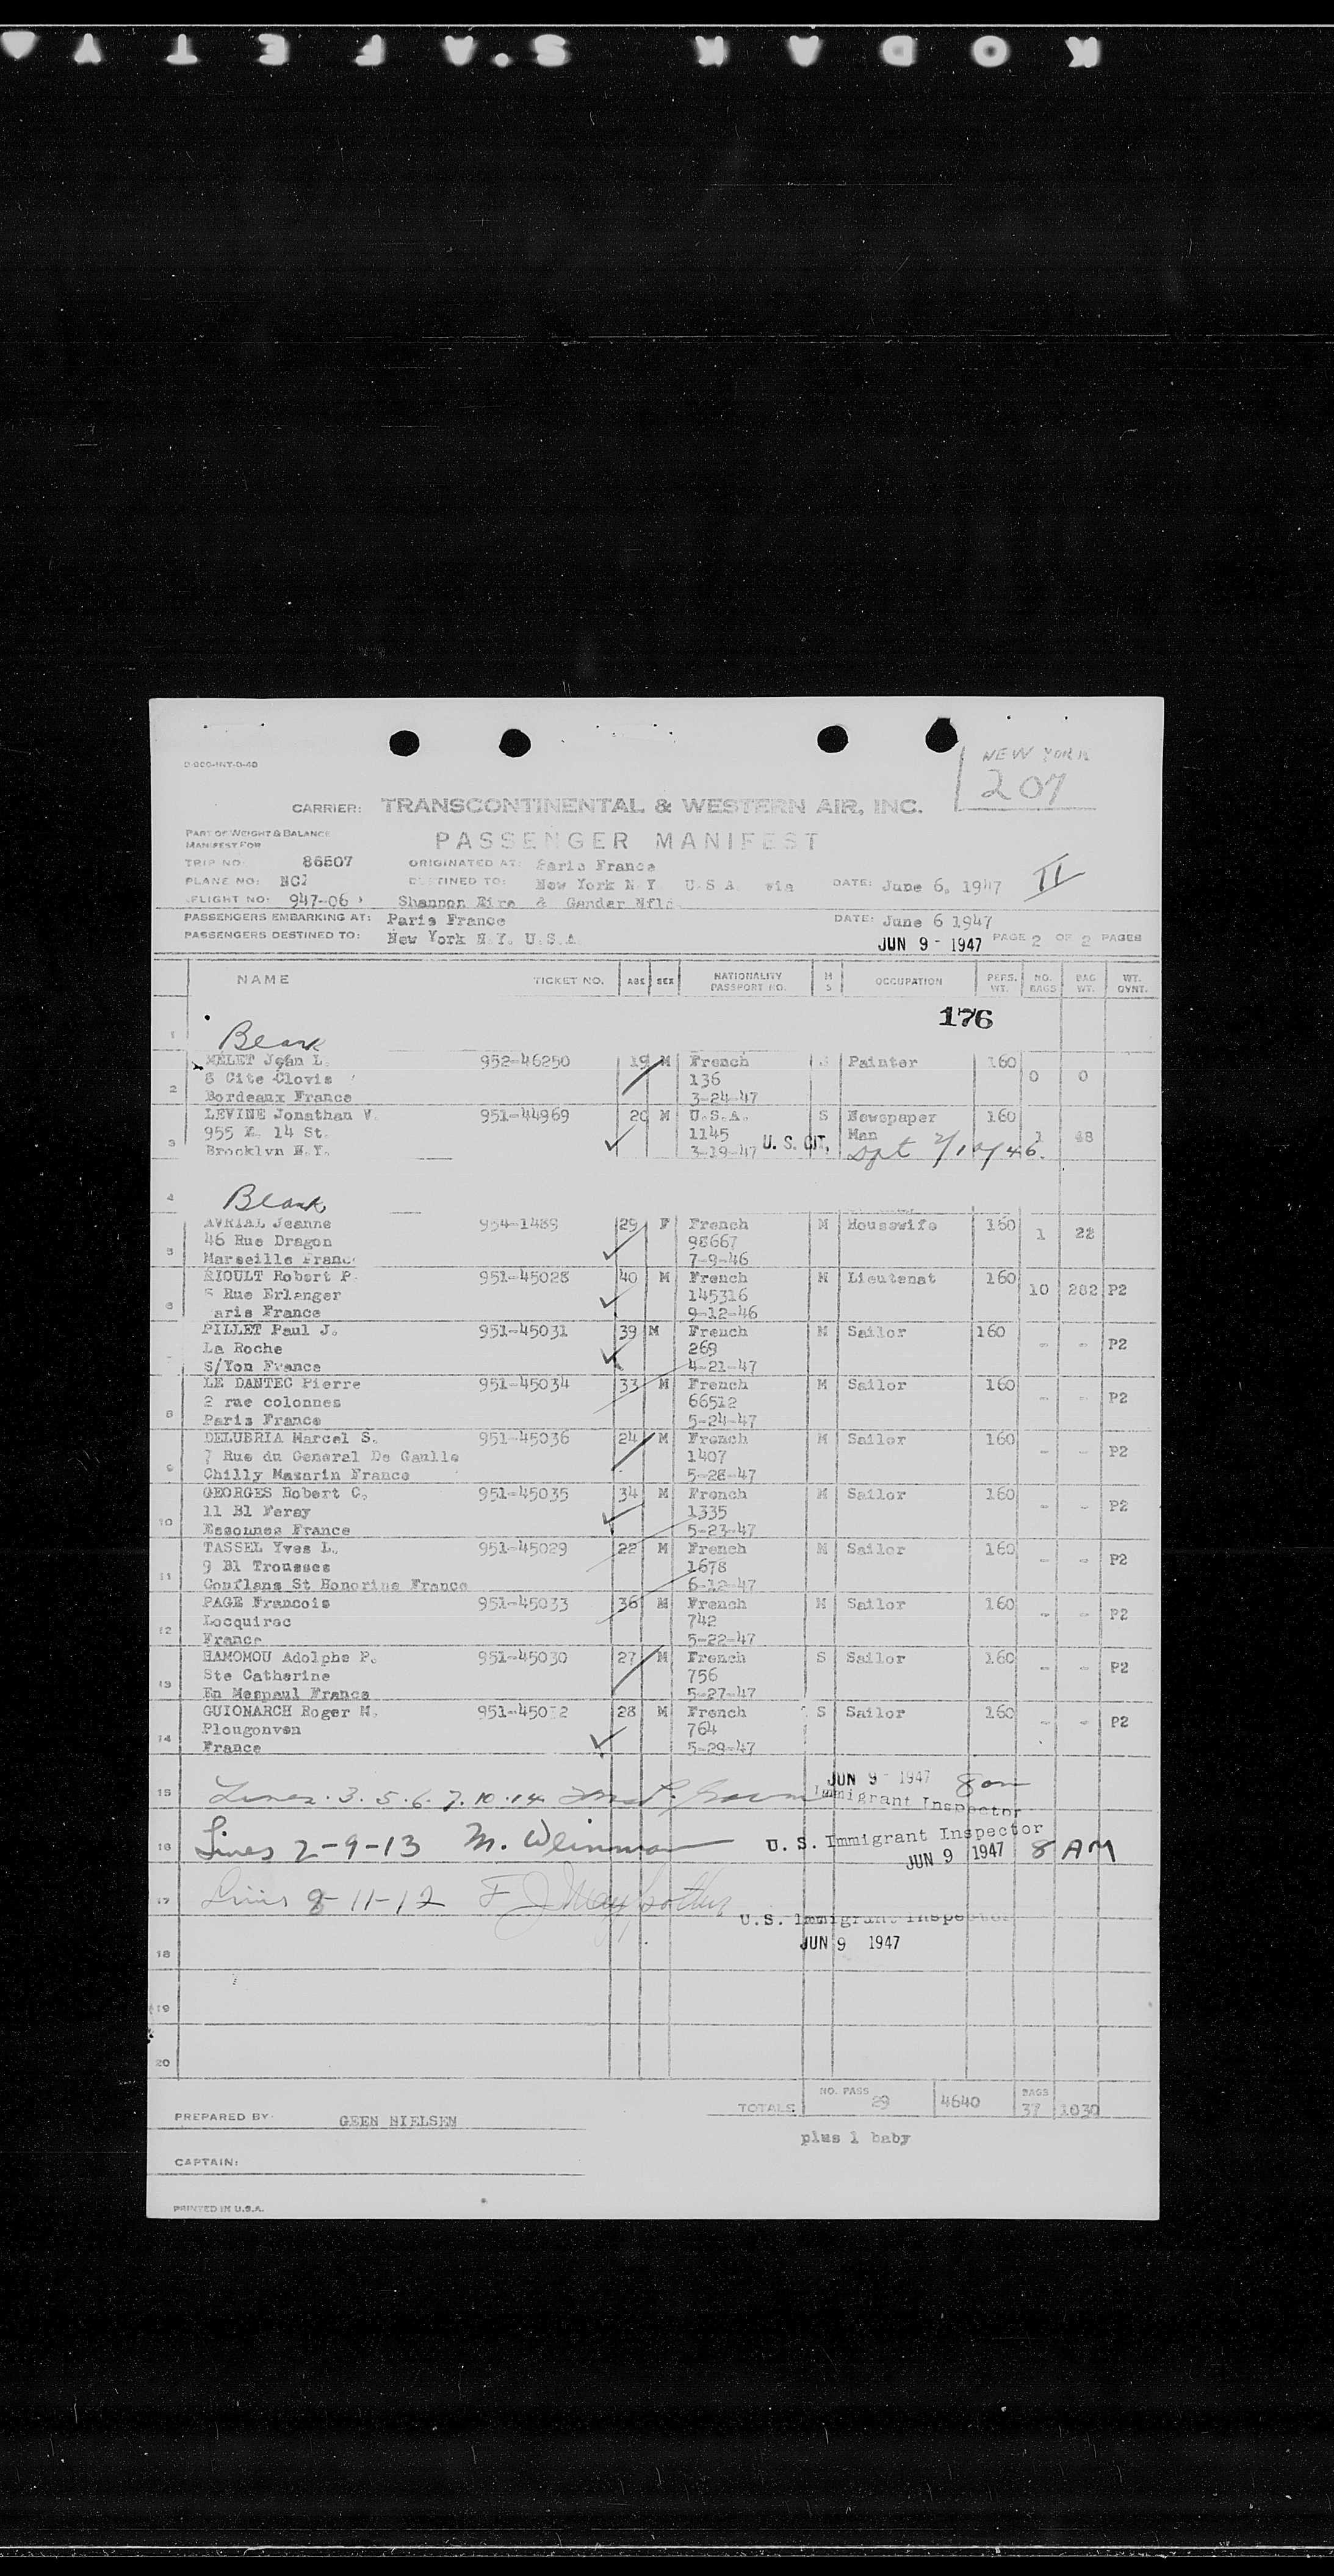 KODAK S.AFETY
D-800-INT-D-40
NEW YORK
207
CARRIER: TRANSCONTINENTAL & WESTERN AIR, INC.
PART OF WEIGHT & BALANCE
MANIFEST FOR
PASSENGER MANIFEST
TRIP NO: 86507 ORIGINATED AT: Paris France
PLANE NO: DESTINED TO: New York N.Y. U.S.A. via DATE: June 6, 1947 II
FLIGHT NO: 947-06 Shannon Eire & Gander Nfld.
PASSENGERS EMBARKING AT: Paris France DATE: June 6 1947
PASSENGERS DESTINED TO: New York N.Y. U.S.A. JUN 9 - 1947 PAGE 2 OF 2 PAGES
NAME TICKET NO. AGE SEX NATIONALITY PASSPORT NO. M S OCCUPATION PERS. WT. NO. BAGS BAG WT. WT. OVNT.
176
1 Blank
MELET Jean L. 952-46250 19 M French S Painter 160
2 8 Cite Clovis 136 0 0
Bordeaux France 3-24-47
LEVINE Jonathan V. 951-44969 20 M U.S.A. S Newspaper 160
3 955 E. 14 St. 1145 Man 1 48
Brooklyn N.Y. 3-19-47 U. S. CIT.
4 Blank
AVRIAL Jeanne 954-1489 29 F French M Housewife 160
5 46 Rue Dragon 98667 1 22
Marseille France 7-9-46
RIOULT Robert P. 951-45028 40 M French M Lieutenat 160
6 5 Rue Erlanger 145316 10 282 P2
aris France 9-12-46
PILLET Paul J. 951-45031 39 M French M Sailor 160
7 La Roche 269 - - P2
S/Yon France 4-21-47
LE DANTEC Pierre 951-45034 33 M French M Sailor 160
8 2 rue colonnes 66512 - - P2
Paris France 5-24-47
DELUBRIA Marcel S. 951-45036 24 M French M Sailor 160
9 7 Rue du General De Gaulle 1407 - - P2
Chilly Mazarin France 5-28-47
GEORGES Robert C. 951-45035 34 M French M Sailor 160
10 11 Bl Feray 1335 - - P2
Essonnes France 5-23-47
TASSEL Yves L. 951-45029 22 M French M Sailor 160
11 9 Bl Trousses 1678 - - P2
Conflans St Honorine France 6-12-47
PAGE Francois 951-45033 36 M French M Sailor 160
12 Locquirec 742 - - P2
France 5-22-47
HAMOMOU Adolphe P. 951-45030 27 M French S Sailor 160
13 Ste Catherine 756 - - P2
En Mespaul France 5-27-47
GUIONARCH Roger M. 951-45032 28 M French S Sailor 160
14 Plougonven 764 - - P2
France 5-29-47
15 Lines. 3. 5. 6. 7. 10. 14. JUN 9 - 1947 8am
Immigrant Inspector
16 Lines 2-9-13 M. Weinman U. S. Immigrant Inspector
JUN 9 1947 8 AM
17 Lines 8-11-12 U.S. Immigrant Inspector
18 JUN 9 1947
19
20
TOTALS NO. PASS 29 4640 BAGS 37 1030
PREPARED BY: GEEN NIELSEN
plus 1 baby
CAPTAIN:
PRINTED IN U.S.A.